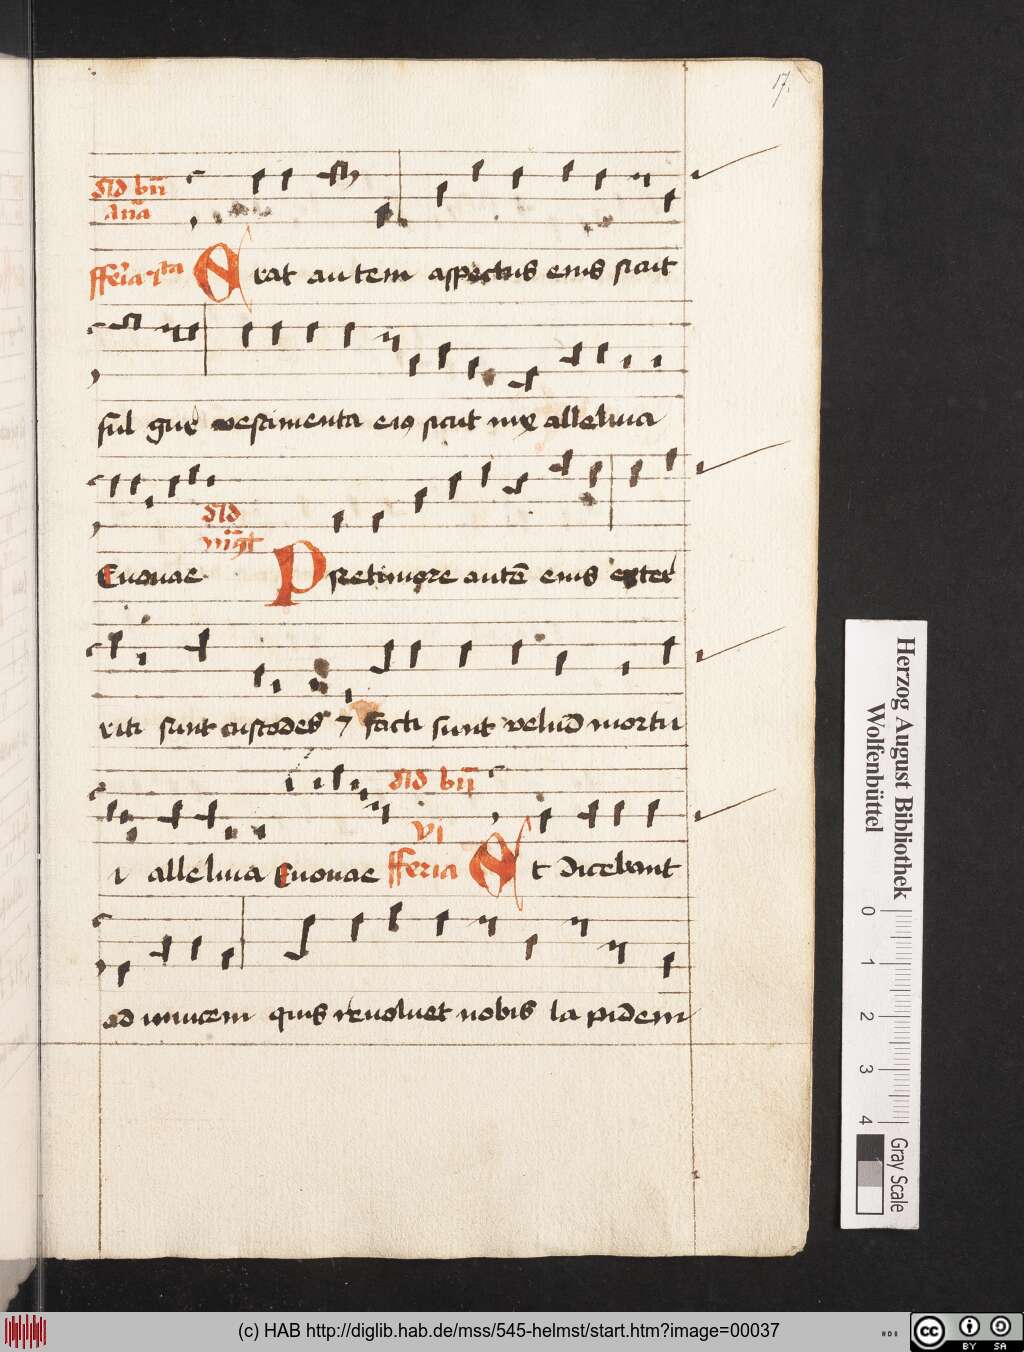 17.
Erat autem aspectus eius sicut
ful gur vestimenta ei9 sicut nix alleluia
Euouae
Pre timore autē eius exter
riti sunt custodes ⁊ facti sunt velud mortu
i alleluia Euouae
fferia VI Et dicebant
ad inuicem quis reuoluet nobis la pidem
Herzog August Bibliothek
Wolfenbüttel
0 1 2 3 4
Gray Scale
(c) HAB http://diglib.hab.de/mss/545-helmst/start.htm?image=00037
cc BY SA